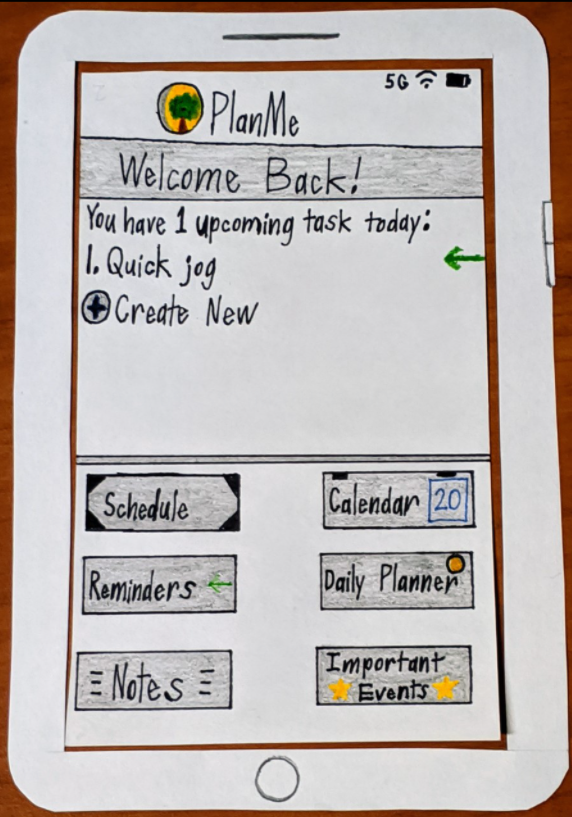 5G
PlanMe
Welcome Back!
You have 1 upcoming task today:
1. Quick jog
Create New
Schedule
Calendar 20
Reminders
Daily Planner
Notes
Important
Events